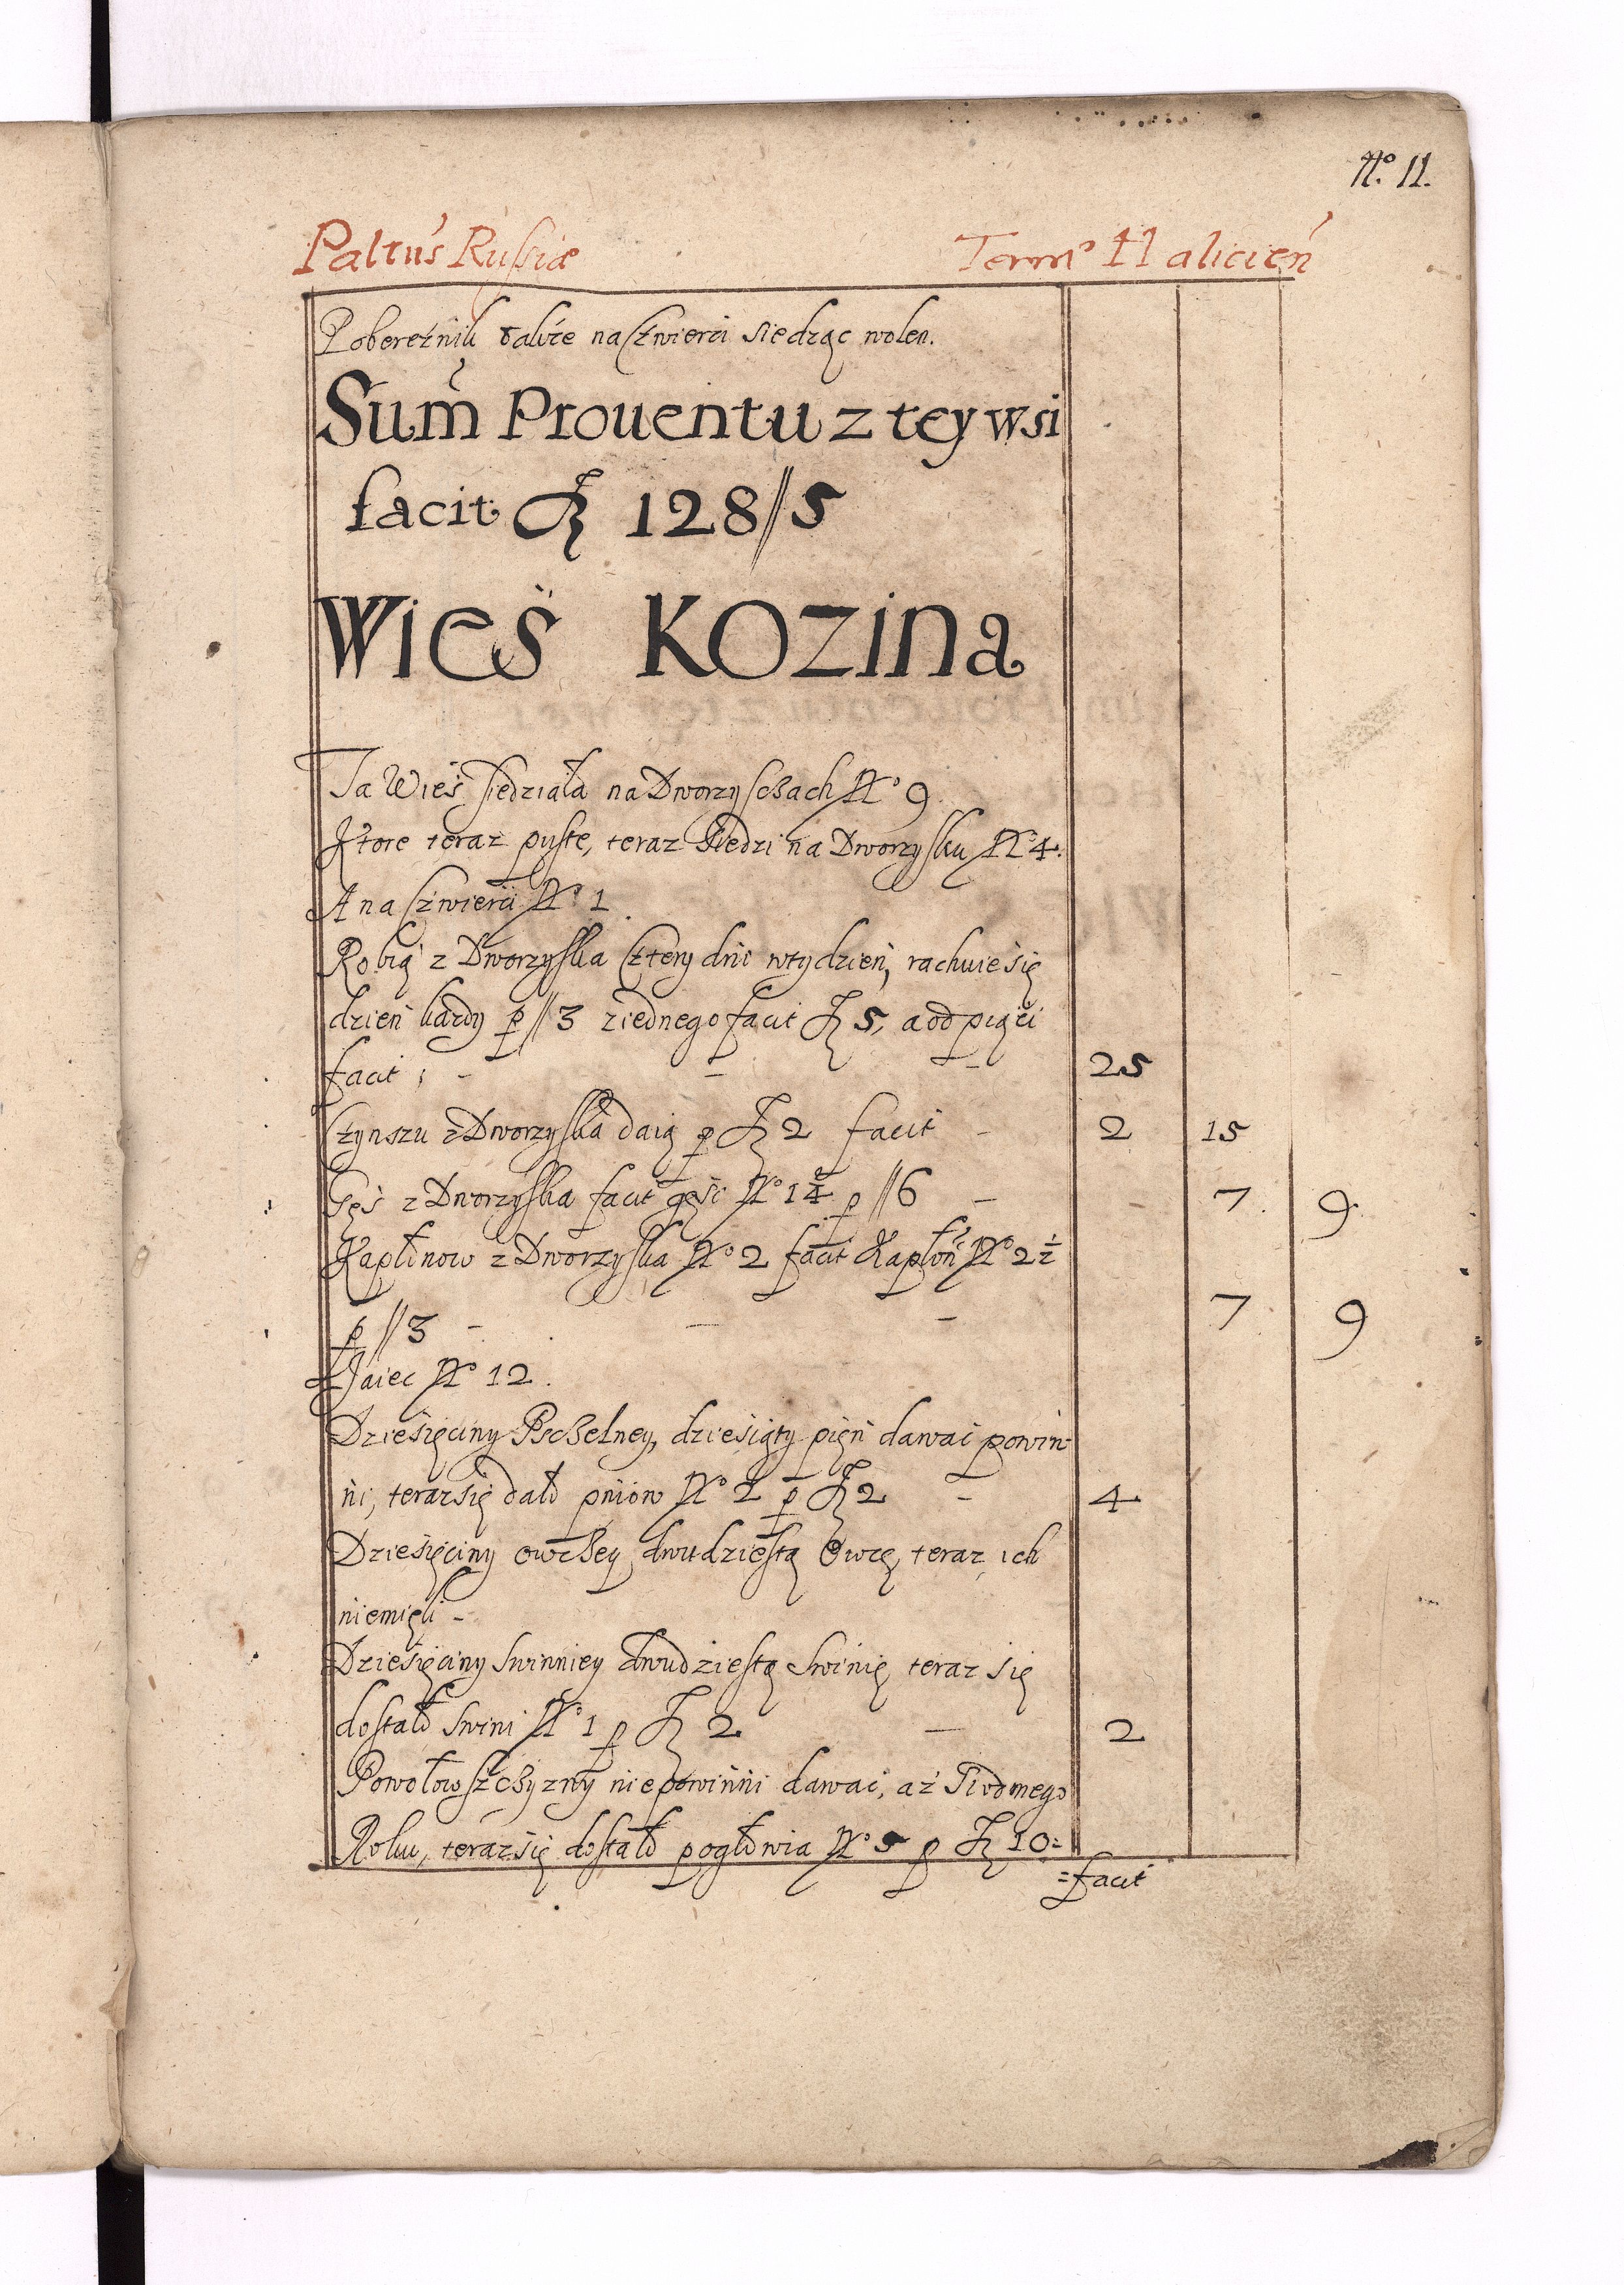 No. 11.
Paltus Russiæ Terrae Halicień
Pobereżnik także na Czwierci siedząc wolen.
Sum̃ Prouentu z tey wsi
facit fl 128//5
WIEŚ KOZINA
Ta Wieś siedziała na Dworzyszczach No 9
Ktore teraz puste, teraz siedzi na Dworzysku No 4.
A na Czwierci No 1.
Robią z Dworzyska Cztery dni w tydzień, rachuie się
dzień kazdy p //3 ziednego facit fl 5, a od pięci
facit; - - - 25
Czynszu z Dworzyska daią p fl 2 facit - 2 15
Gęś z Dworzyska facit gęsi No 1 ¼ p //6 - 7. 9.
Kapłonow z Dworzyska No 2 facit Kapłoń No 2 ½
p //3 - - - 7. 9
Jaiec No 12.
Dziesięciny Pszczelney, dziesiąty pień dawać powin-
ni, teraz się dało pniow No 2 p fl 2 - 4
Dziesięciny owczey dwudziestą Owcę, teraz ich
niemieli -
Dziesięciny swinniey dwudziestą swinię teraz się
dostało swini No 1 p fl 2 - 2
Powołowszczyzny niepowinni dawać, aż Siodmego
Roku, teraz się dostało pogłowia No 5 p fl 10=
=facit